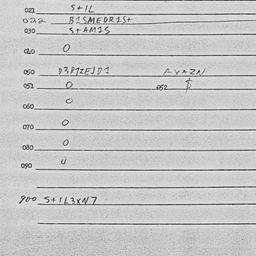 021 S+IL
022 B1SMEDR1S+
030 S+AM1S
040 O
050 P3P7ZEJD1 AVAZN
051 O 052 $
060 O
070 O
080 O
090 O
900 S+IL3XN7